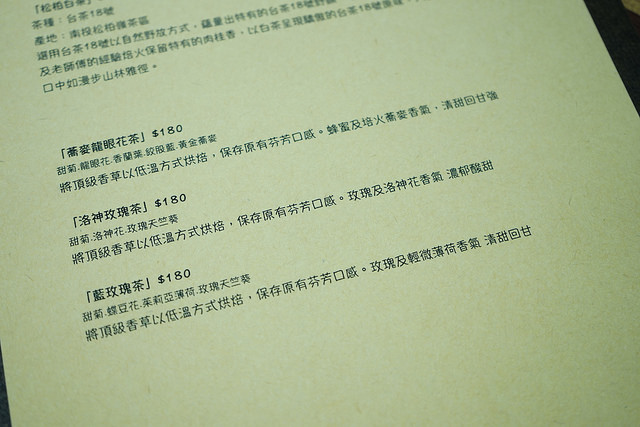 「松柏白茶」
茶種：台茶18號
產地：南投松柏嶺茶區
選用台茶18號以自然野放方式，蘊量出特有的台茶18號
及老師傅的經驗焙火保留特有的肉桂香，以白茶呈現驕傲的台茶18號
口中如漫步山林雅徑。
「蕎麥龍眼花茶」$180
甜菊.龍眼花.香蘭葉.絞股藍.黃金蕎麥
將頂級香草以低溫方式烘焙，保存原有芬芳口感。蜂蜜及焙火蕎麥香氣，清甜回甘強
「洛神玫瑰茶」$180
甜菊.洛神花.玫瑰天竺葵
將頂級香草以低溫方式烘焙，保存原有芬芳口感。玫瑰及洛神花香氣 濃郁酸甜
「藍玫瑰茶」$180
甜菊.蝶豆花.茱莉亞薄荷.玫瑰天竺葵
將頂級香草以低溫方式烘焙，保存原有芬芳口感。玫瑰及輕微薄荷香氣 清甜回甘